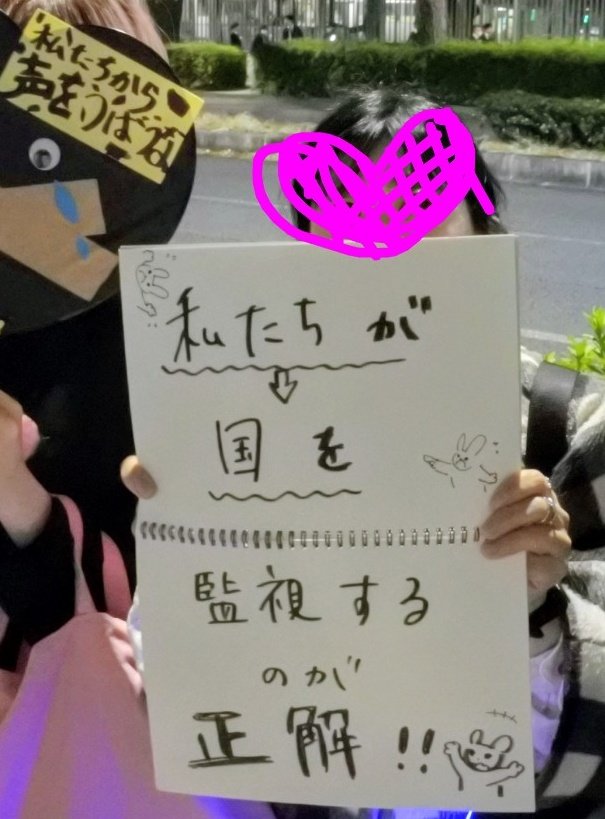 私たちから
声をうばうな
私たちが
⇩
国を
監視する
のが
正解!!